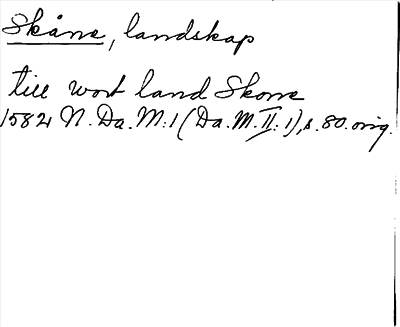 Skåne, landskap
till wort land Skone
1582 N.Da.M:1 (Da.M.II:1), s.80. orig.